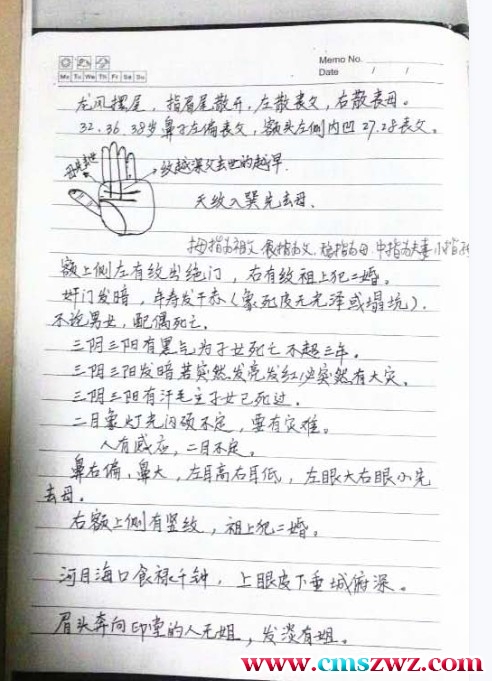 Memo No.
Date / /
Mo Tu We Th Fr Sa Su
龙凤摆尾，指眉尾散开，左散丧父，右散丧母。
32.36.38岁鼻子左偏丧父，额头左侧内凹27.28丧父。
母先去世
纹越深父去世的越早.
天纹入巽先去母.
拇指为祖父 食指为父，为母.中指为夫妻
额上侧左有纹出绝门，右有纹祖上犯二婚。
奸门发暗，年寿发干赤(象死皮无光泽或塌坑).
不论男女，配偶死亡.
三阴三阳有黑气为子女死亡不超三年。
三阴三阳发暗若突然发亮发红必突然有大灾。
三阴三阳有汗毛主子女已死过.
二目象灯光闪烁不定，要有灾难。
人有感应，二目不定。
鼻右偏，鼻大，左耳高右耳低，左眼大右眼小先
去母.
右额上侧有竖纹，祖上犯二婚。
河目海口食禄千钟，上眼皮下垂城府深。
眉头奔向印堂的人无姐，发淡有姐。
www.cmszwz.com